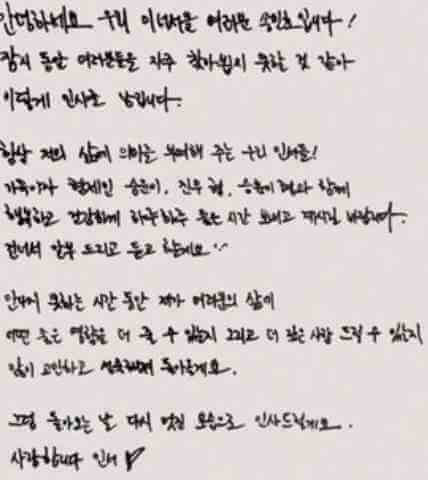 안녕하세요 우리 이너서클 여러분 송민호입니다!
잠시 동안 여러분들을 자주 찾아뵙지 못할 것 같아
이렇게 인사를 남깁니다.
항상 저의 삶에 의미를 부여해 주는 우리 인서들!
가족이자 형제인 승윤이, 진우 형, 승훈이 형과 함께
행복하고 건강하게 하루하루 좋은 시간 보내고 계시길 바랍니다.
건너서 안부 드리고 듣고 할게요
만나지 못하는 시간 동안 제가 여러분의 삶에
어떤 좋은 영향을 더 줄 수 있는지 그리고 더 깊은 사랑 드릴 수 있는지
많이 고민하고 돌아올게요.
그럼 돌아오는 날 다시 멋진 모습으로 인사드릴게요.
사랑합니다 인서